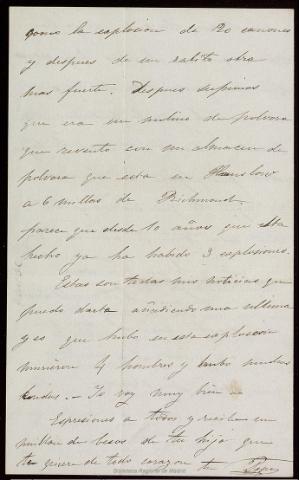 como la esplosion de 20 cañones
y despues de un ratito otra
mas fuerte. Despues supimos
que era un molino de polvora
que revento con un almacen de
polvora que esta en Hounslow
a 6 millas de Richmond
parece que desde 10 años que esta
hecho ya ha habido 3 esplosiones.
Estas son todas mis noticias que
puedo darte añadiendo una ultima
y es que hubo en esta esplosion
murieron 4 hombres y hubo muchos
heridos. – Yo voy muy bien
Espresiones a todos y recibe un
millon de besos de tu hijo que
te quiere de todo corazon tu Pepe
Biblioteca Regional de Madrid